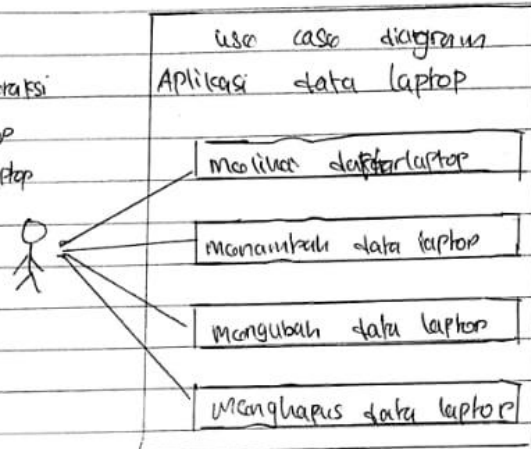 use case diagram
Aplikasi data laptop
raksi
melihat daftar laptop
menambah data laptop
mengubah data laptop
menghapus data laptop